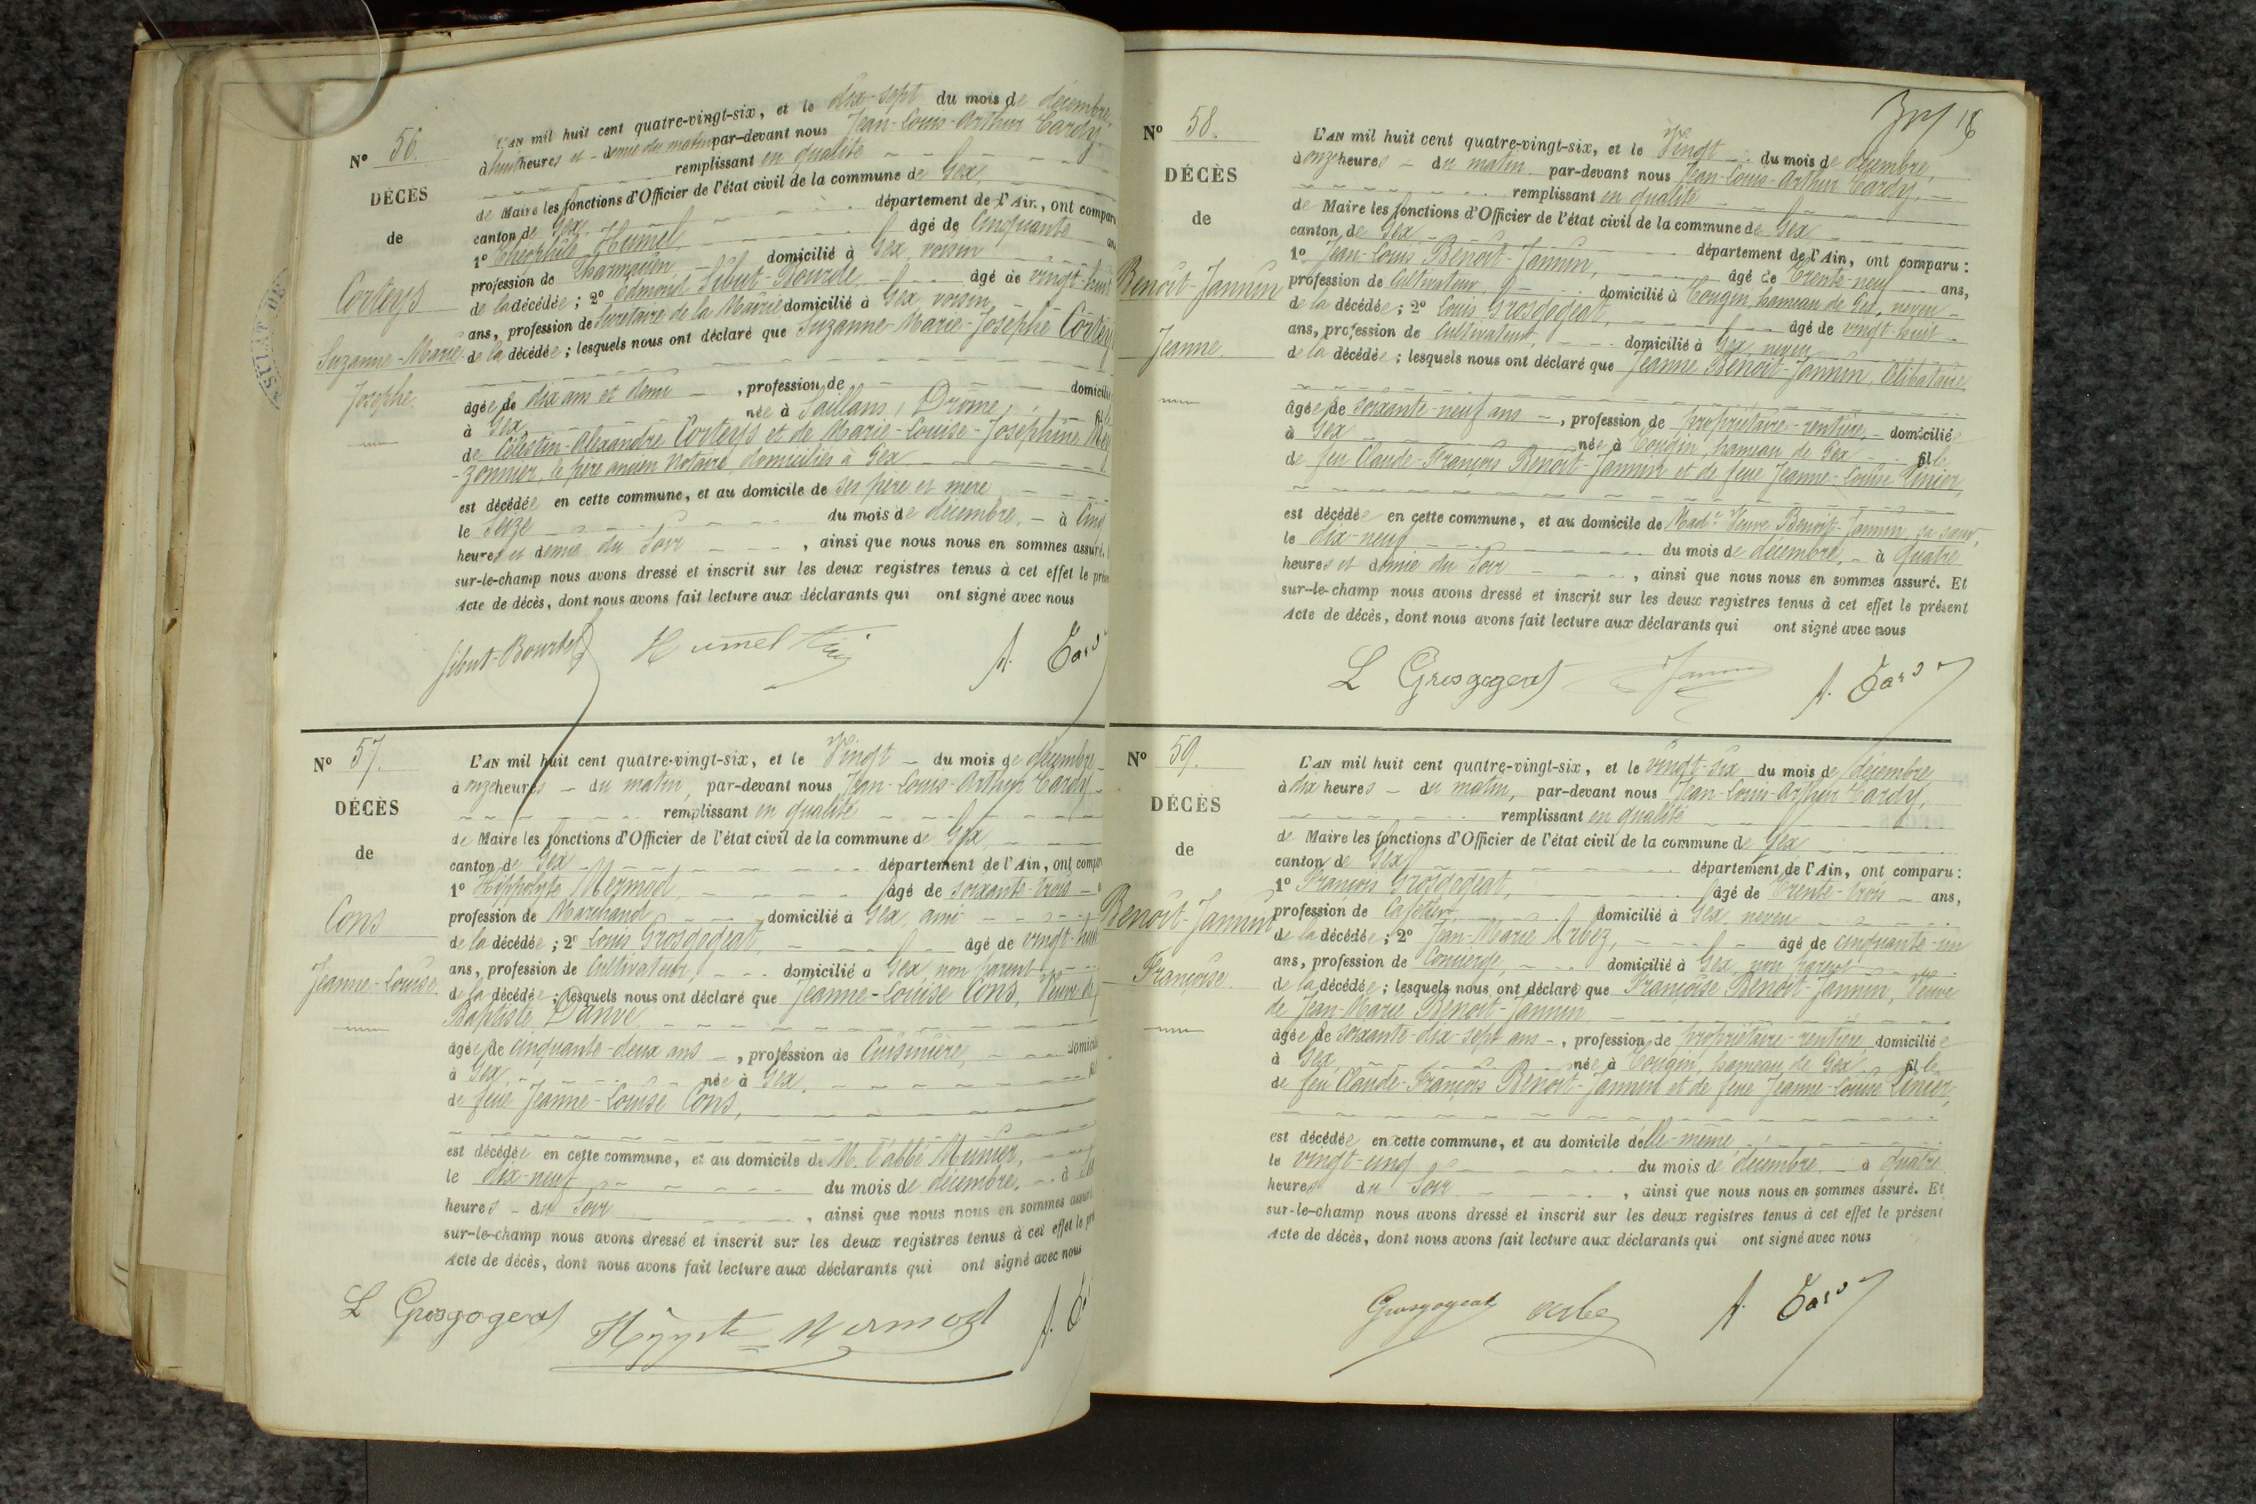 N° 56.
DÉCÈS
de
Corteys
Suzanne-Marie-
Josephe
L'AN mil huit cent quatre-vingt-six, et le dix-sept du mois de décembre,
à huit heures et demie du matin par-devant nous Jean-Louis-Arthur Tardy
remplissant en qualité
de Maire les fonctions d'Officier de l'état civil de la commune de Gex,
canton de Gex département de l'Ain, ont comparu
1° Théophile Humel âgé de Cinquante ans
profession de Pharmacien, domicilié à Gex, voisin
de la décédée; 2° Edmond Sibut-Bourde, âgé de vingt-huit
ans, profession de Secrétaire de la Mairie domicilié à Gex, voisin,
de la décédée; lesquels nous ont déclaré que Suzanne-Marie-Josephe Corteys
âgée de dix ans et demi, profession de domicilié
à Gex, née à Saillans, Drôme, fille
de Célestin-Alexandre Corteys et de Marie-Louise-Joséphine
-zonnier, le père ancien Notaire, domiciliés à Gex
est décédée en cette commune, et au domicile de ses père et mère
le Seize du mois de décembre, à Cinq
heures et demie du Soir, ainsi que nous nous en sommes assuré.
sur-le-champ nous avons dressé et inscrit sur les deux registres tenus à cet effet le présent
Acte de décès, dont nous avons fait lecture aux déclarants qui ont signé avec nous
Sibut-Bourde Humel A. Tardy
N° 57.
DÉCÈS
de
Cons
Jeanne-Louise
L'AN mil huit cent quatre-vingt-six, et le Vingt du mois de décembre
à onze heures du matin, par-devant nous Jean-Louis-Arthur Tardy
remplissant en qualité
de Maire les fonctions d'Officier de l'état civil de la commune de Gex,
canton de Gex département de l'Ain, ont comparu
1° Hippolyte Mermod, âgé de soixante-trois
profession de Marchand domicilié à Gex, ami
de la décédée; 2° Louis Grosgogeat, âgé de vingt-huit
ans, profession de Cultivateur, domicilié à Gex, non parent
de la décédée; lesquels nous ont déclaré que Jeanne-Louise Cons, Veuve de
Baptiste Danve
âgée de cinquante-deux ans, profession de Cuisinière, domicilié
à Gex, née à Gex, fille
de feue Jeanne-Louise Cons,
est décédée en cette commune, et au domicile de M. l'abbé Munier,
le dix-neuf du mois de décembre, à
heures du Soir, ainsi que nous nous en sommes assuré
sur-le-champ nous avons dressé et inscrit sur les deux registres tenus à cet effet le pré
Acte de décès, dont nous avons fait lecture aux déclarants qui ont signé avec nous
L Grosgogeat Hyppte Mermod A. T
N° 58.
DÉCÈS
de
Benoit-Jannin
Jeanne
16
L'AN mil huit cent quatre-vingt-six, et le Vingt du mois de décembre,
à onze heures du matin par-devant nous Jean-Louis-Arthur Tardy,
remplissant en qualité
de Maire les fonctions d'Officier de l'état civil de la commune de Gex
canton de Gex département de l'Ain, ont comparu:
1° Jean-Louis Benoit-Jannin, âgé de Trente-neuf ans,
profession de Cultivateur, domicilié à Tougin, hameau de Gex, neveu
de la décédée; 2° Louis Grosgogeat, âgé de vingt-huit
ans, profession de Cultivateur, domicilié à Gex, neveu
de la décédée; lesquels nous ont déclaré que Jeanne Benoit-Jannin, Célibataire
âgée de soixante-neuf ans, profession de propriétaire-rentière, domiciliée
à Gex née à Tougin, hameau de Gex fille
de feu Claude-François Benoit-Jannin et de feue Jeanne-Louise
est décédée en cette commune, et au domicile de Made Veuve Benoit-Jannin, sa sœur,
le dix-neuf du mois de décembre, à quatre
heures et demie du Soir, ainsi que nous nous en sommes assuré. Et
sur-le-champ nous avons dressé et inscrit sur les deux registres tenus à cet effet le présent
Acte de décès, dont nous avons fait lecture aux déclarants qui ont signé avec nous
L Grosgogeat Jannin A. Tardy
N° 59.
DÉCÈS
de
Benoit-Jannin
Françoise
L'AN mil huit cent quatre-vingt-six, et le vingt-six du mois de décembre
à dix heures du matin, par-devant nous Jean-Louis-Arthur Tardy,
remplissant en qualité
de Maire les fonctions d'Officier de l'état civil de la commune de Gex
canton de Gex département de l'Ain, ont comparu:
1° François Grosgogeat, âgé de Trente-trois ans,
profession de Cafetier, domicilié à Gex, neveu
de la décédée; 2° Jean-Marie Arbez, âgé de cinquante-un
ans, profession de Concierge, domicilié à Gex, non parent
de la décédée; lesquels nous ont déclaré que Françoise Benoit-Jannin, Veuve
de Jean-Marie Benoit-Jannin
âgée de soixante-dix-sept ans, profession de propriétaire-rentière, domiciliée
à Gex, née à Tougin, hameau de Gex, fille
de feu Claude-François Benoit-Jannin et de feue Jeanne-Louise
est décédée en cette commune, et au domicile d'elle-même,
le vingt-cinq du mois de décembre à quatre
heures du Soir, ainsi que nous nous en sommes assuré. Et
sur-le-champ nous avons dressé et inscrit sur les deux registres tenus à cet effet le présent
Acte de décès, dont nous avons fait lecture aux déclarants qui ont signé avec nous
Grosgogeat Arbez A. Tardy